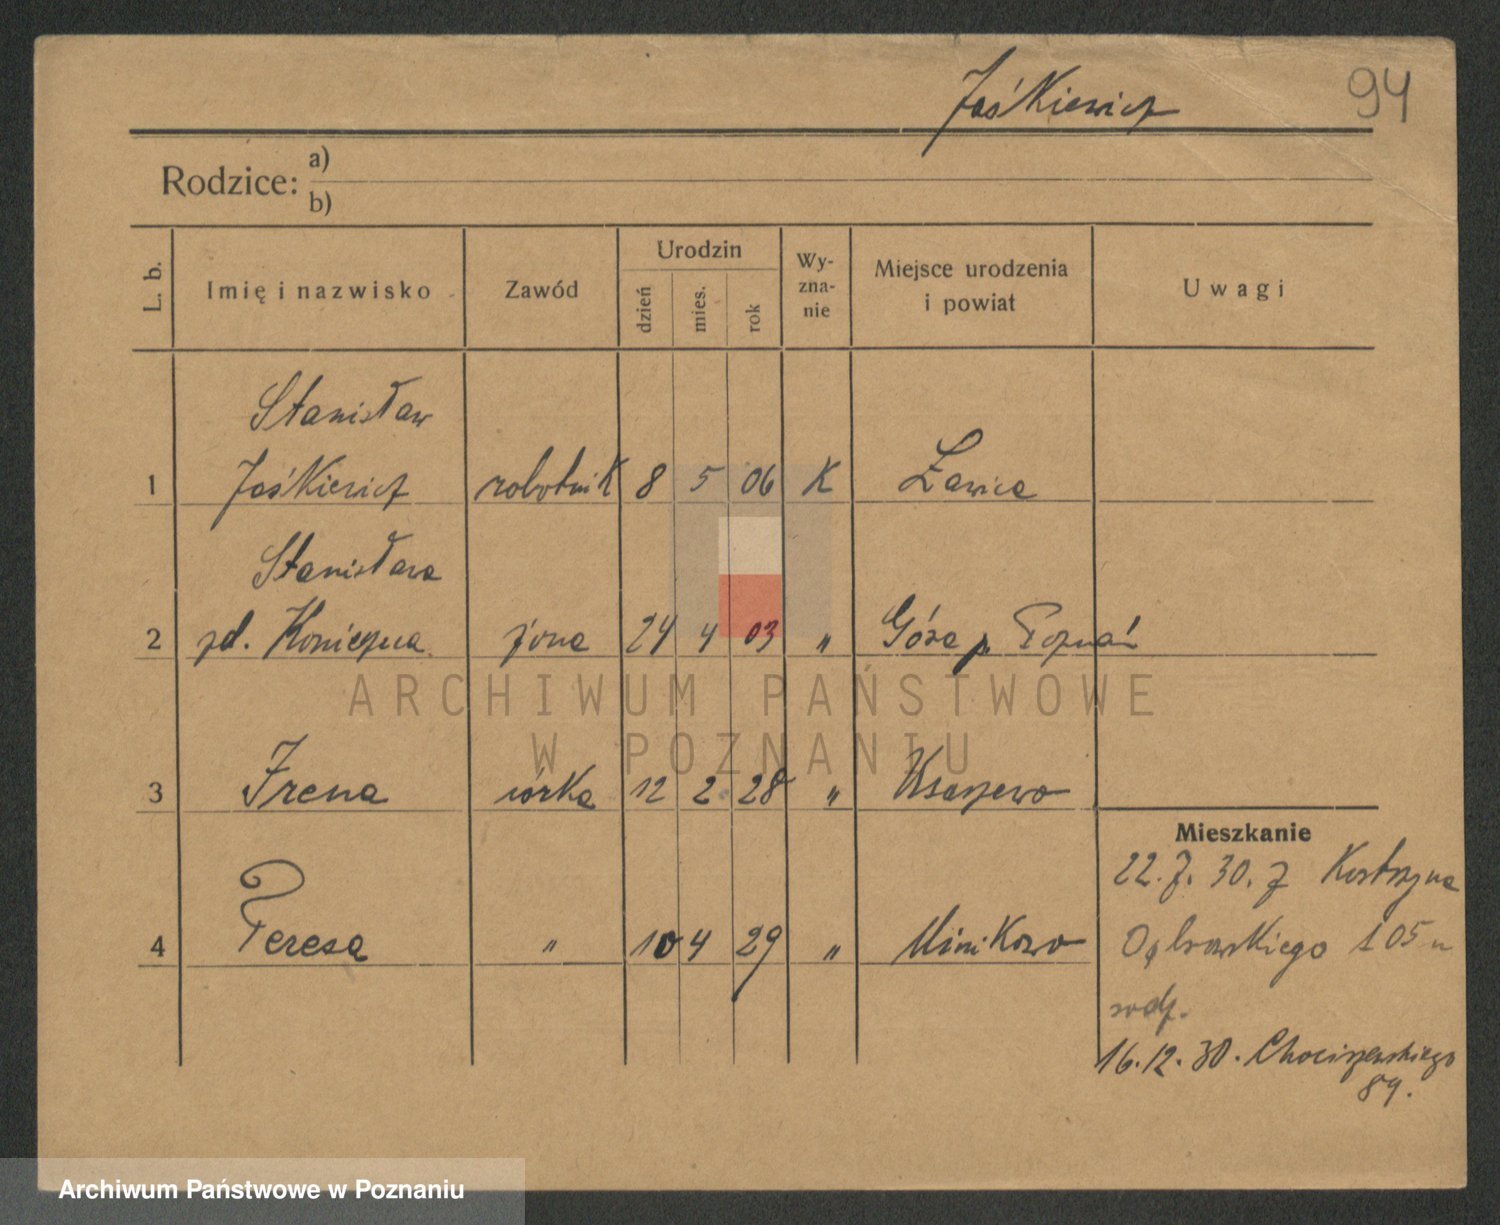 Jaśkiewicz 94
Rodzice: a)
b)
L. b. Imię i nazwisko Zawód Urodzin dzień mies. rok Wyznanie Miejsce urodzenia i powiat Uwagi
Stanisław
1 Jaśkiewicz robotnik 8 5 06 K Ławica
Stanisława
2 zd. Konieczna żona 24 4 03 „ Góra p. Poznań
ARCHIWUM PAŃSTWOWE
W POZNANIU
3 Irena córka 12 2 28 „
Mieszkanie
22. 7. 30. z Kostrzyna
Teresa
4 „ 10 4 29 „ Minikowo
Dąbrowskiego 105 u
rodz.
16.12.30. Chociszewskiego
89.
Archiwum Państwowe w Poznaniu